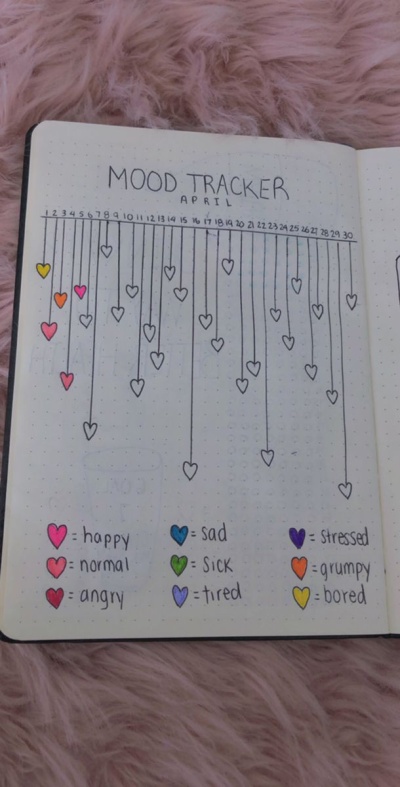 MOOD TRACKER
APRIL
1 2 3 4 5 6 7 8 9 10 11 12 13 14 15 16 17 18 19 20 21 22 23 24 25 26 27 28 29 30
= happy = sad = stressed
= normal = sick = grumpy
= angry = tired = bored